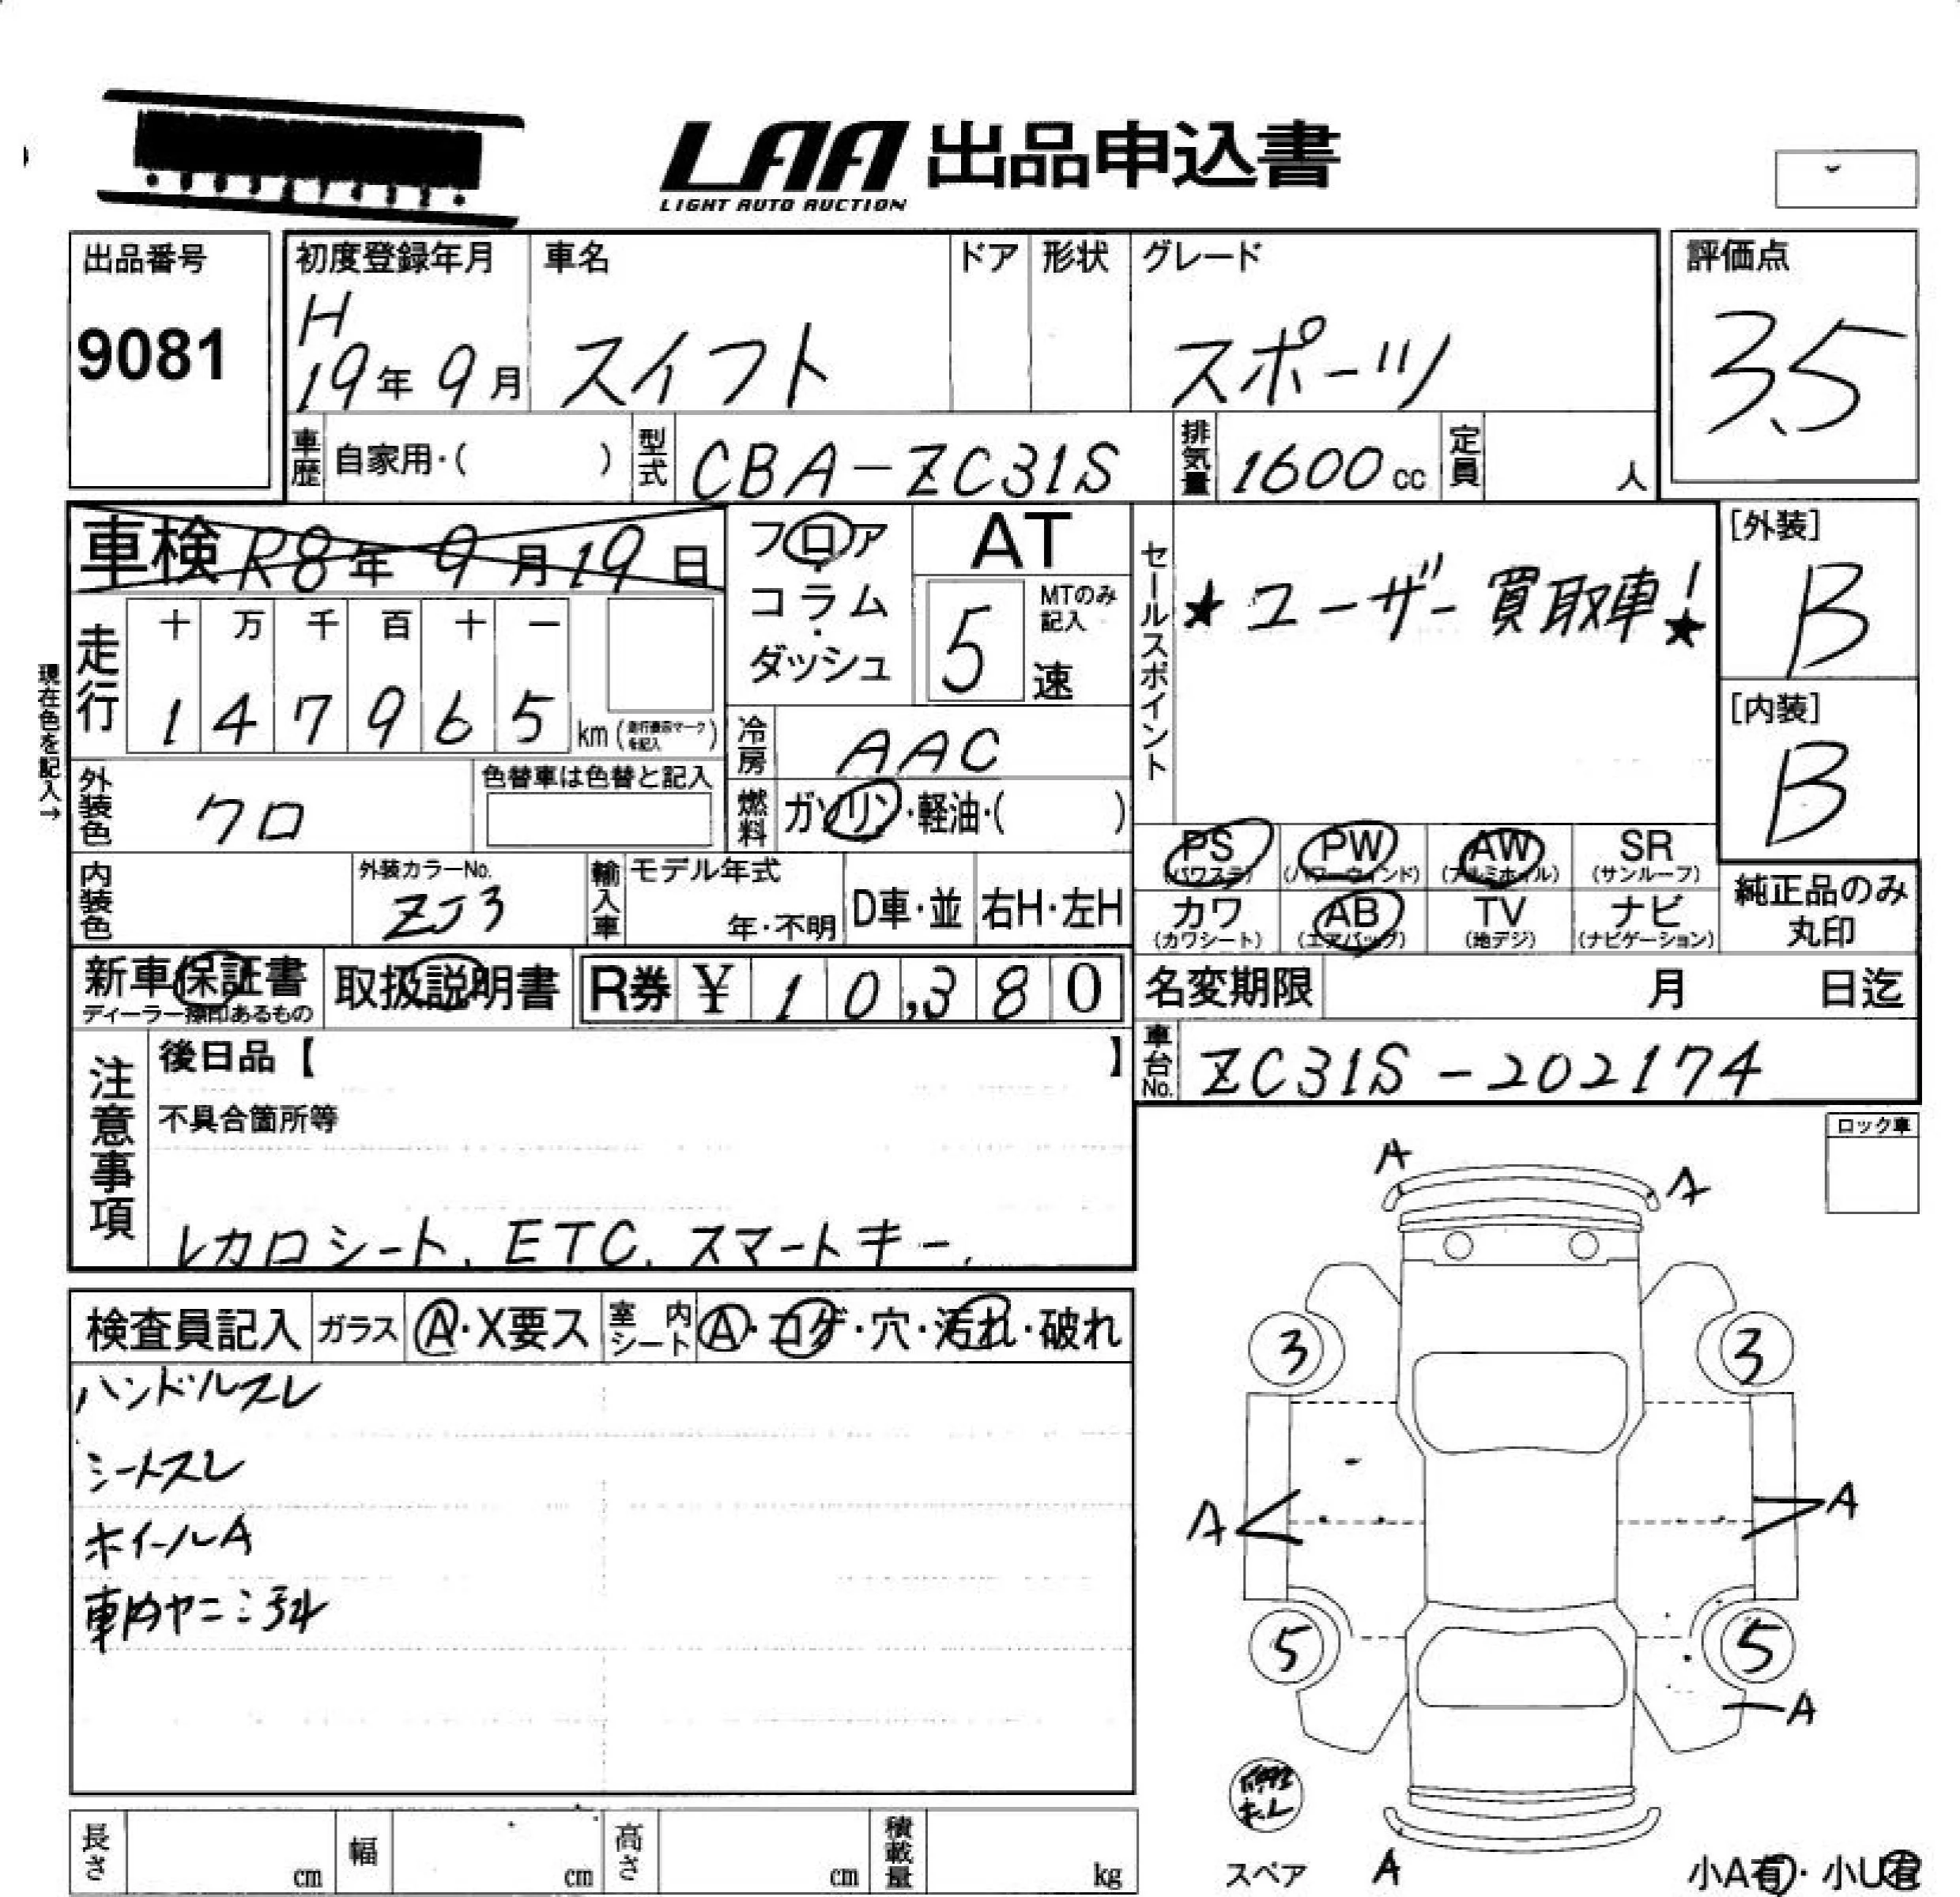 LAA 出品申込書
LIGHT AUTO AUCTION
出品番号
9081
初度登録年月
H
19年 9月
車名
スイフト
ドア
形状
グレード
スポーツ
評価点
3.5
車歴
自家用・( )
型式
CBA-ZC31S
排気量
1600cc
定員
人
車検 R8年 9月19日
フロア・コラム・ダッシュ
AT
5
MTのみ記入
速
セールスポイント
★ユーザー買取車!★
[外装]
B
[内装]
B
現在色を記入→
走行
十 万 千 百 十 一
1 4 7 9 6 5 km
冷房
AAC
外装色
クロ
色替車は色替と記入
燃料
ガソリン・軽油・( )
PS (パワステ)
PW (パワーウィンド)
AW (アルミホイル)
SR (サンルーフ)
カワ (カワシート)
AB (エアバッグ)
TV (地デジ)
ナビ (ナビゲーション)
純正品のみ丸印
内装色
外装カラーNo.
ZJ3
輸入車
モデル年式
年・不明
D車・並
右H・左H
新車保証書
ディーラー捺印あるもの
取扱説明書
R券 ¥ 10,380
名変期限
月 日迄
車台No.
ZC31S-202174
注意事項
後日品【 】
不具合箇所等
レカロシート、ETC、スマートキー、
ロック車
検査員記入
ガラス
A・X要ス
室内シート
A・コゲ・穴・汚れ・破れ
ハンドルスレ
シートスレ
ホイールA
車内ヤニ汚れ
A
A
3
3
A
A
5
5
A
A
スペア
小A有・小U有
長さ
cm
幅
cm
高さ
cm
積載量
kg